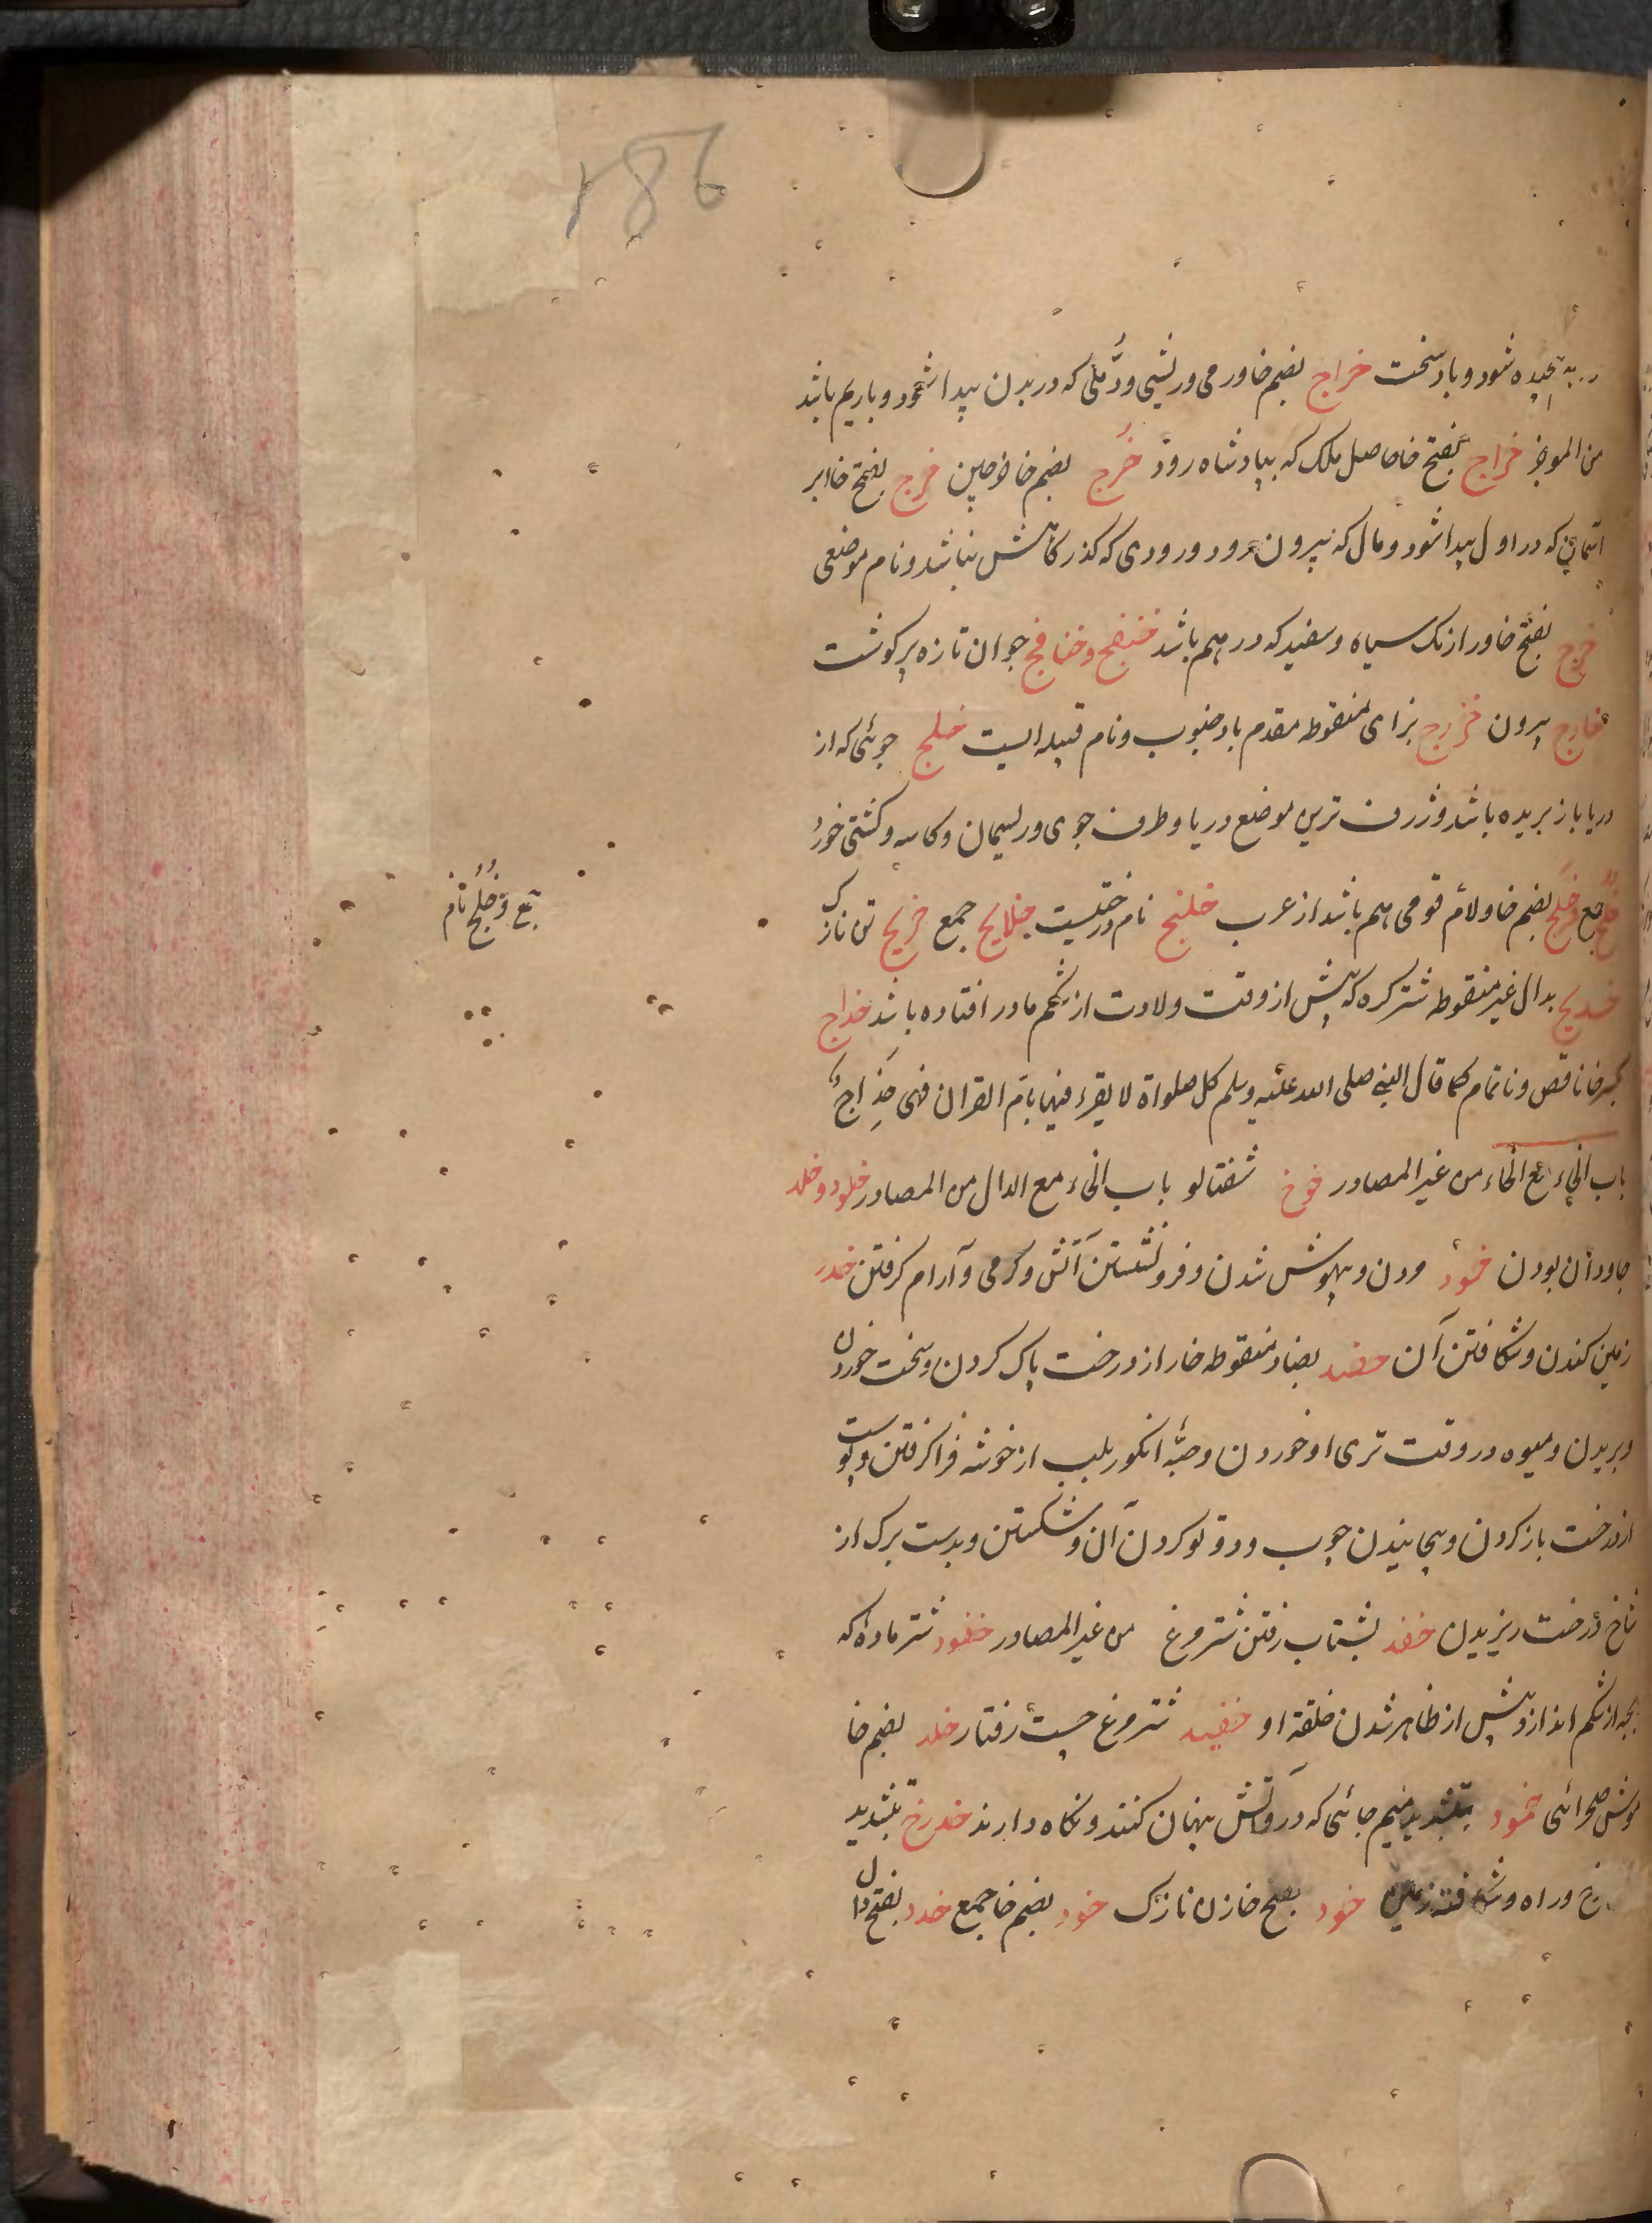 186
پیچیده شود و باد سخت خراج بضم خا ورمی و ریشی و دُمّلی که در بدن پیدا شود و باریم باشد
من الموجز خراج بفتح خا حاصل ملک که بپادشاه رود خُرج بضم خا خورجین خرج بفتح خا ابر
که در اول پیدا شود و مال که بیرون رود و رودی که گذرگاهش نباشد و نام موضعی
خرج بفتح خا و را رنگ سیاه و سفید که در هم باشد خنفج و خفافج جوان تازه پر گوشت
خارج بیرون خزرج بزای منقوطه مقدم باد جنوب و نام قبیله ایست خلیج جوئی که از
دریا باز بریده باشد و ژرف ترین موضع دریا و طرف جوی و ریسمان و کاسه و کشتی خورد
خُلُج جمع و خُلُج بضم خا و لام قومی هم باشد از عرب خلنج نام درختیست خلانج جمع خریج تن نازک
جمع و خُلُج نام
خدیج بدال غیر منقوطه شتر کره که پیش از وقت ولادت از شکم مادر افتاده باشد خداج
بکسر خا ناقص و ناتمام کما قال النبی صلی الله علیه وسلم کل صلواة لا یقرء فیها بام القران فهی خِدَاجٌ
باب الخاء مع الخاء من غیر المصادر خوخ شفتالو باب الخاء مع الدال من المصادر خلود و خلد
جاودان بودن خمود مردن و بیهوش شدن و فرو نشستن آتش و گرمی و آرام گرفتن خدر
زمین کندن و شکافتن آن خضد بضاد منقوطه خار از درخت پاک کردن و سخت خوردن
و بریدن و میوه در وقت تری او خوردن و حبّهٔ انگور بلب از خوشه فرا گرفتن و پوست
از درخت باز کردن و پیچانیدن چوب و دوتو کردن آن و شکستن و بدست برگ از
شاخ درخت ریزیدن خفد بشتاب رفتن شترمرغ من غیر المصادر خفود شتر ماده که
بچه از شکم اندازد پیش از ظاهر شدن خلقة او خفید شترمرغ چست رفتار خلد بضم خا
موش صحرائی خمود بتشدید میم جائی که درو آتش پنهان کنند و نگاه دارند خد رخ بتشدید
رخ و راه و شکافته زمین خود بفتح خا زن نازک خود بضم خا جمع خدد بفتح دال